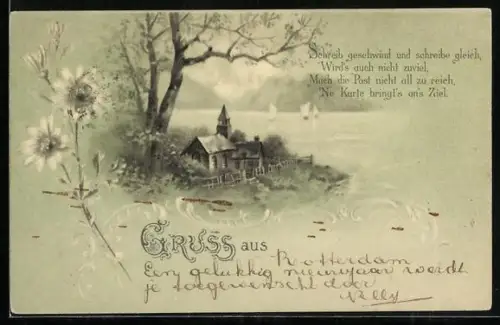 Schreib geschwind und schreibe gleich,
Wird's auch nicht zuviel,
Mach die Post nicht all zu reich,
'Ne Karte bringt's an's Ziel.
GRUSS aus
Rotterdam
Een gelukkig nieuwjaar wordt
je toegewenscht door
Nelly